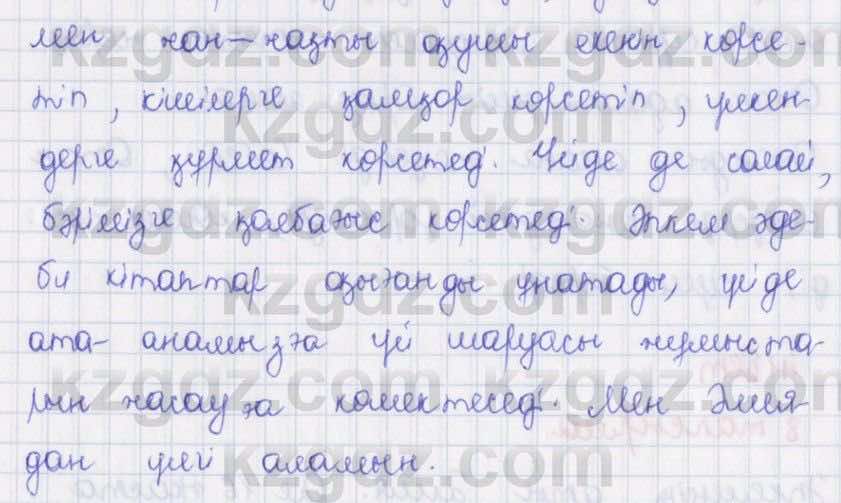 мен жан-жақты оқушы екенін көрсе-
тіп, кішілерге қамқор көрсетіп, үлкен-
дерге құрмет көрсетеді. Үйде де солай,
бәрімізге қолғабыс көрсетеді. Әпкем әде-
би кітаптар оқығанды ұнатады, үйде
ата-анамызға үй шаруасы жұмыста-
рын жасауға көмектеседі. Мен Әлия-
дан үлгі аламын.
kzgdz.com